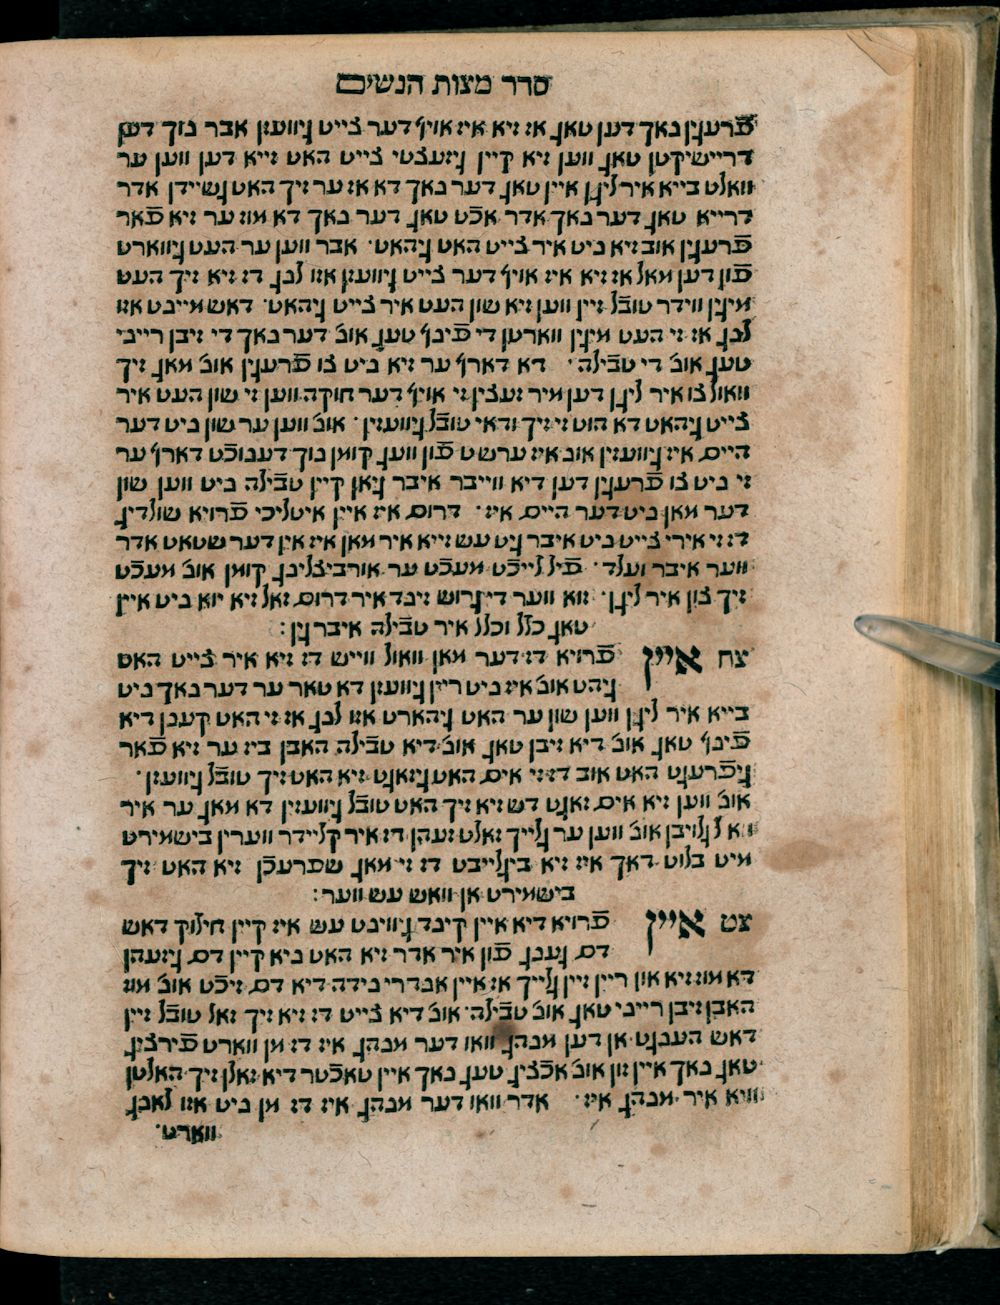 סדר מצות הנשים
פֿרעגין נאך דען טאג אז זיא איז אויף דער צייט גיוועזן אבר נוך דען
דריישיקטן טאג ווען זיא קיין גיזעצטי צייט האט זייא דען ווען ער
וואלט בייא איר ליגן איין טאג דער נאך דא אז ער זיך האט גשיידן אדר
דרייא טאג דער נאך אדר אכֿט טאג דער נאך דא מוז ער זיא פֿאר
פֿרעגין אוב זיא ניט איר צייט האט גיהאט׳ אבר ווען ער העט גיווארט
פֿון דען מאל אז זיא איז אויף דער צייט גיוועזן אזו לנג דז זיא זיך העט
מיגין ווידר טובֿל זיין ווען זיא שון העט איר צייט גיהאט׳ דאש מיינט אזו
לנג אז זי העט מיגין ווארטן די פֿינף טעג אונ׳ דער נאך די זיבן רייני
טעג אונ׳ די טבֿילה׳ דא דארף ער זיא ניט צו פֿרעגין אונ׳ מאג זיך
וואול צו איר ליגן דען מיר זעצין זי אויף דער חזקה ווען זי שון העט איר
צייט גיהאט דא הוט זי זיך ודאי טובֿל גיוועזין׳ אונ׳ ווען ער שון ניט דער
היים איז גיוועזין אונ׳ איז ערשט פֿון וועג קומן נוך דענוכֿט דארף ער
זי ניט צו פֿרעגין דען דיא ווייבר איבר גיאן קיין טבֿילה ניט ווען שון
דער מאן ניט דער היים איז׳ דרום איז איין איטליכי פֿרויא שולדיג
דז זי אירי צייט ניט איבר גיט עש זייא איר מאן איז אין דער שטאט אדר
ווער איבר ועלד׳ פֿיל לייכֿט מעכֿט ער אורביצלינג קומן אונ׳ מעכֿט
זיך צון איר ליגן׳ זוא ווער די גרוש זינד איר דרום זאל זיא יוא ניט איין
טאג כלל וכלל איר טבֿילה איבר גין:
צח איין פֿרויא דז דער מאן וואול ווייש דז זיא איר צייט האט
גיהט אונ׳ איז ניט ריין גיוועזן דא טאר ער דער נאך ניט
בייא איר ליגן ווען שון ער האט גיהארט אזו לנג אז זי האט קענן דיא
פֿינף טאג אונ׳ דיא זיבן טאג אונ׳ דיא טבֿילה האבן ביז ער זיא פֿאר
גיפֿרעגט האט אוב דז זי אים האט גיזאגט זיא האט זיך טובֿל גיוועזן׳
אונ׳ ווען זיא אים זאגט דש זיא זיך האט טובֿל גיוועזין דא מאג ער איר
גלויבן אונ׳ ווען ער גלייך זאלט זעהן דז איר קליידר ווערין בישמירט
מיט בלוט דאך איז זיא ביגלייבט דז זי מאג שפרעכֿן זיא האט זיך
בישמירט אן וואש עש ווער:
צט איין פֿרויא דיא איין קינד גיווינט עש איז קיין חילוק דאש
דם געגנג פֿון איר אדר זיא האט ניא קיין דם גיזעהן
דא מוז זיא און ריין זיין גלייך אז איין אנדרי נידה דיא דם זיכֿט אונ׳ מוז
האבן זיבן רייני טאג אונ׳ טבֿילה׳ אונ׳ דיא צייט דז זיא זיך זאל טובֿל זיין
דאש הענגט אן דען מנהג וואו דער מנהג איז דז מן ווארט פֿירציג
טאג נאך איין זון אונ׳ אכֿציג טעג נאך איין טאכֿטר דיא זאלן זיך האלטן
וויא איר מנהג איז׳ אדר וואו דער מנהג איז דז מן ניט אזו לאנג
ווארט׳